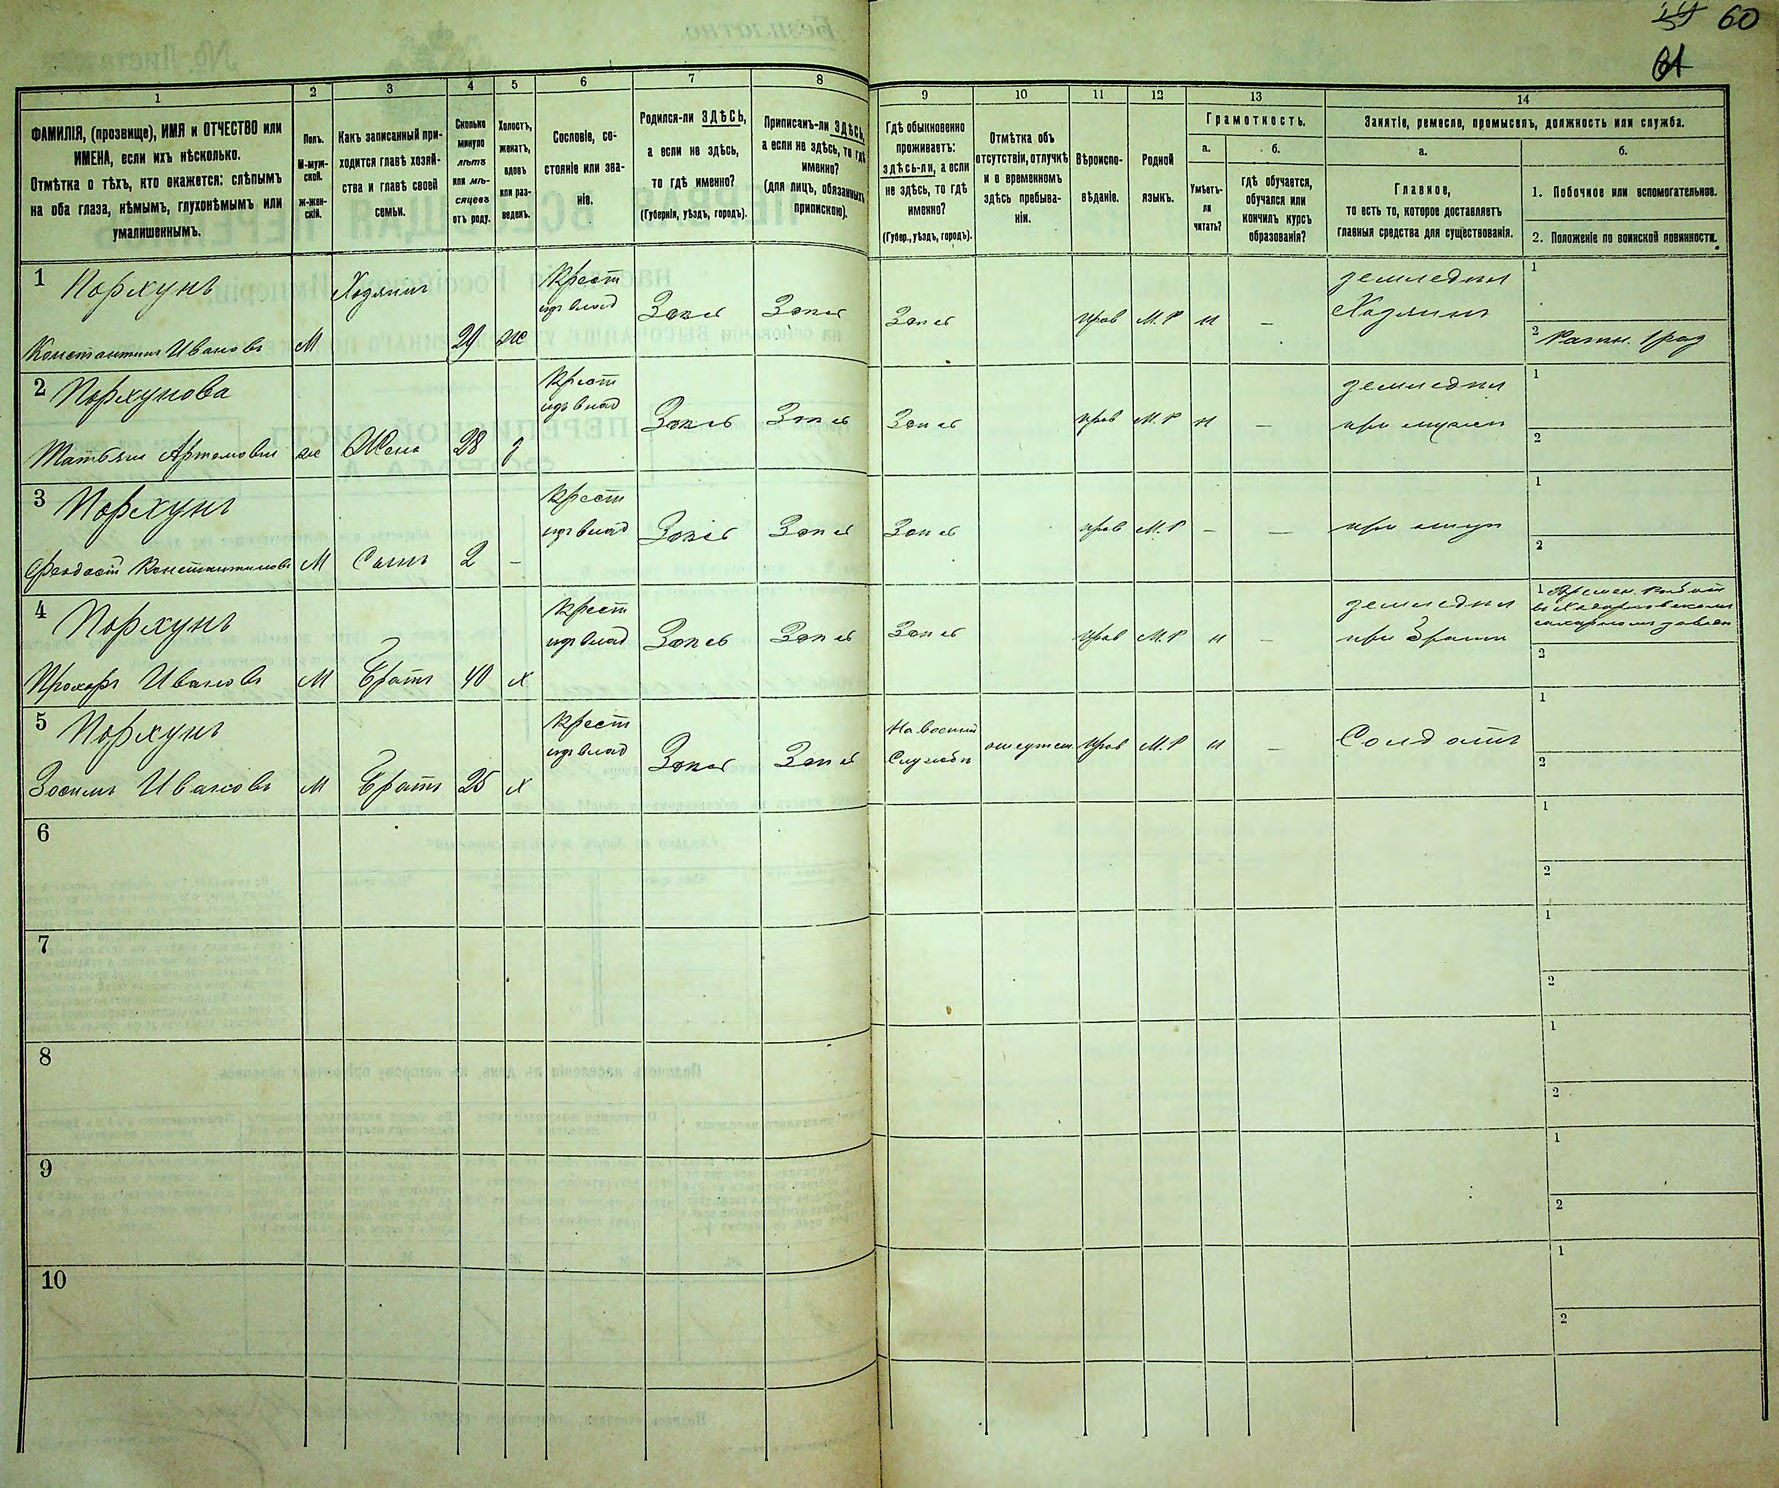 59 60
61
1
2
3
4
5
6
7
8
9
10
11
12
13
14
ФАМИЛІЯ, (прозвище), ИМЯ и ОТЧЕСТВО или
ИМЕНА, если ихъ нѣсколько.
Отмѣтка о тѣхъ, кто окажется: слѣпымъ
на оба глаза, нѣмымъ, глухонѣмымъ или
умалишеннымъ.
Полъ.
М-муж-
ской.
ж-жен-
скій.
Какъ записанный при-
ходится главѣ хозяй-
ства и главѣ своей
семьи.
Сколько
минуло
лѣтъ
или мѣ-
сяцевъ
отъ роду.
Холостъ,
женатъ,
вдовъ
или раз-
веденъ.
Сословіе, со-
стояніе или зва-
ніе.
Родился-ли ЗДѢСЬ,
а если не здѣсь,
то гдѣ именно?
(Губернія, уѣздъ, городъ).
Приписанъ-ли ЗДѢСЬ,
а если не здѣсь, то гдѣ
именно?
(для лицъ, обязанныхъ
припискою).
Гдѣ обыкновенно
проживаетъ:
здѣсь-ли, а если
не здѣсь, то гдѣ
именно?
(Губер., уѣздъ, городъ).
Отмѣтка объ
отсутствіи, отлучкѣ
и о временномъ
здѣсь пребыва-
ніи.
Вѣроиспо-
вѣданіе.
Родной
языкъ.
Грамотность.
а.
Умѣетъ-
ли
читать?
б.
гдѣ обучается,
обучался или
кончилъ курсъ
образованія?
Занятіе, ремесло, промыселъ, должность или служба.
а.
Главное,
то есть то, которое доставляетъ
главныя средства для существованія.
б.
1. Побочное или вспомогательное.
2. Положеніе по воинской повинности.
1 Порхунъ
Константинъ Ивановъ М Хозяинъ 29 ж Крест изъ влад Здесь Здесь Здесь прав М.Р н — земледел Хозяинъ 1
2 Ратн. 1 раз
2 Порхунова
Татьяна Артемовна ж Жена 28 з Крест изъ влад Здесь Здесь Здесь прав М.Р н — земледел при мужи 1
2
3 Порхунъ
Феодост Константиновъ М Сынъ 2 — Крест изъ влад Здесь Здесь Здесь прав М.Р — — при отце 1
2
4 Порхунъ
Прохоръ Ивановъ М Братъ 40 х Крест изъ влад Здесь Здесь Здесь прав М.Р н — земледел при Брати 1
сахарномъ заводи
2
5 Порхунъ
Зосимъ Ивановъ М Братъ 25 х Крест изъ влад Здесь Здесь На военной Службѣ отсутств прав М.Р н — Солдатъ 1
2
6 1
2
7 1
2
8 1
2
9 1
2
10 1
2